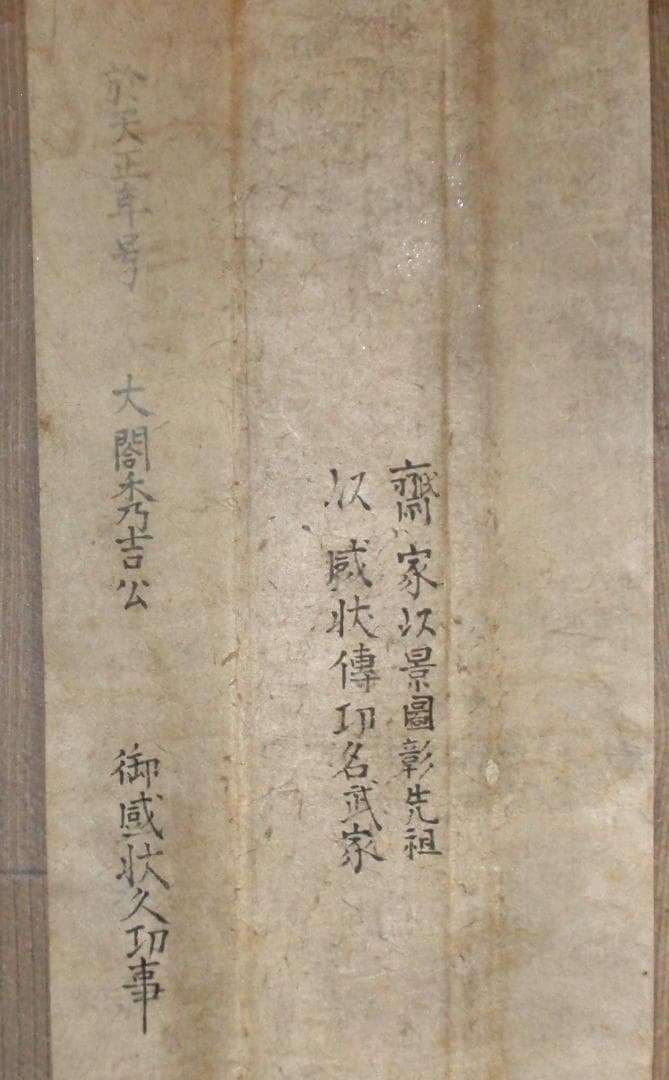 齋家以景圖彰先祖
以感状傳功名武家
於天正年号　大閤秀吉公　御感状久功事